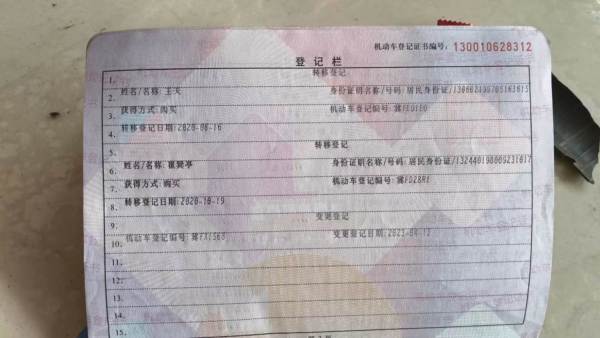 机动车登记证书编号：130010628312
登记栏
1. 转移登记
2. 姓名/名称:王天 身份证明名称/号码:居民身份证/
3. 获得方式:购买 机动车登记编号:
4. 转移登记日期:2020-06-16
5. 转移登记
6. 姓名/名称: 身份证明名称/号码:居民身份证/
7. 获得方式:购买 机动车登记编号:冀FDZ8R1
8. 转移登记日期:2020-10-19
9. 变更登记
10. 机动车登记编号: 变更登记日期:
11.
12.
13.
14.
15.